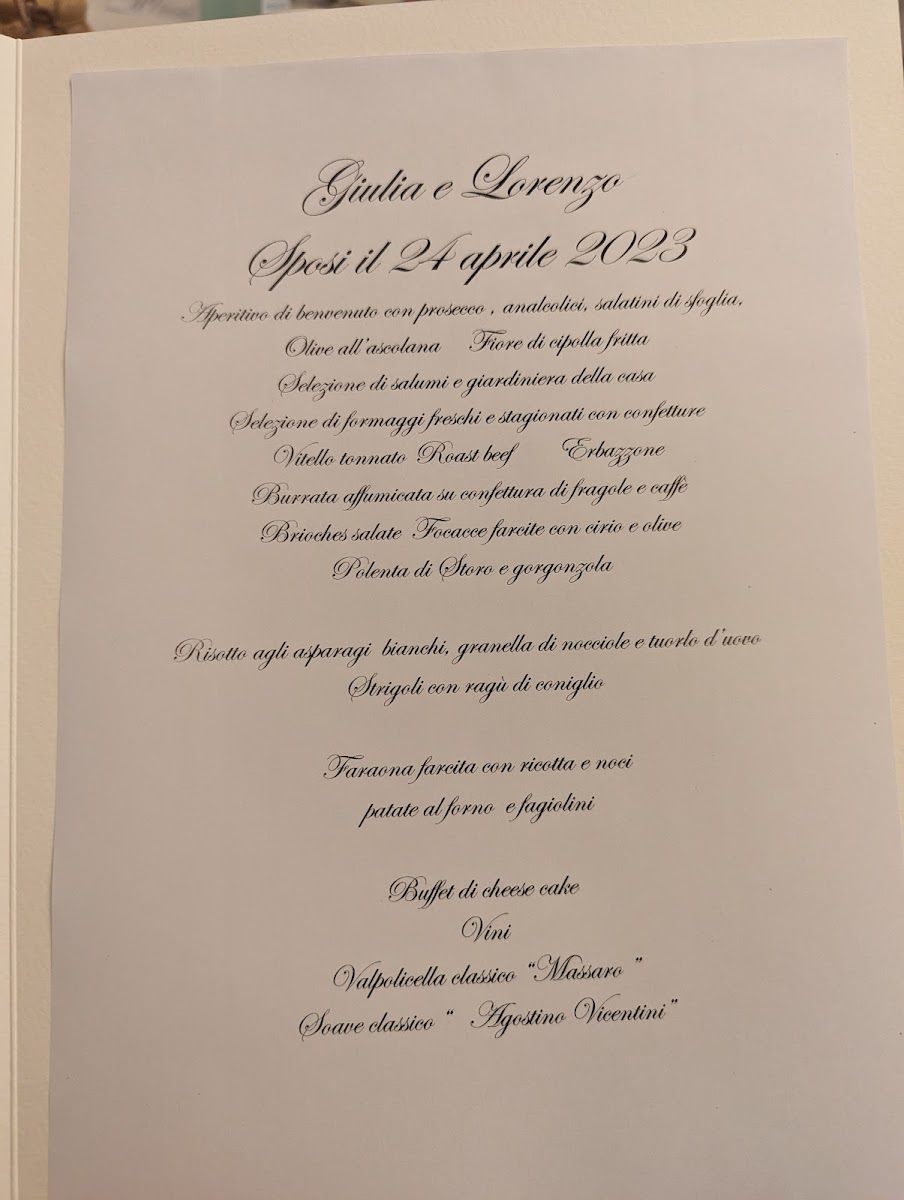 Giulia e Lorenzo
Sposi il 24 aprile 2023
Aperitivo di benvenuto con prosecco , analcolici, salatini di sfoglia,
Olive all'ascolana Fiore di cipolla fritta
Selezione di salumi e giardiniera della casa
Selezione di formaggi freschi e stagionati con confetture
Vitello tonnato Roast beef Erbazzone
Burrata affumicata su confettura di fragole e caffè
Brioches salate Focacce farcite con cirio e olive
Polenta di Storo e gorgonzola
Risotto agli asparagi bianchi, granella di nocciole e tuorlo d'uovo
Strigoli con ragù di coniglio
Faraona farcita con ricotta e noci
patate al forno e fagiolini
Buffet di cheese cake
Vini
Valpolicella classico "Massaro "
Soave classico " Agostino Vicentini"